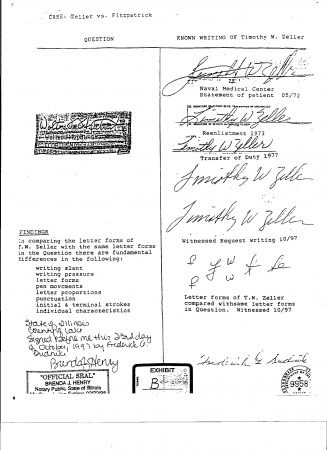 CASE: Zeller vs. Fitzpatrick
QUESTION
KNOWN WRITING OF Timothy W. Zeller
Naval Medical Center
Statement of patient 05/72
Timothy W Zeller
Reenlistment 1973
Timothy W Zeller
Transfer of Duty 1977
Timothy W Zeller
Timothy W Zeller
Witnessed Request writing 10/97
FINDINGS
In comparing the letter forms of
T.W. Zeller with the same letter forms
in the Question there are fundamental
differences in the following:
writing slant
writing pressure
letter forms
pen movements
letter proportions
punctuation
initial & terminal strokes
individual characteristics
Letter forms of T.W. Zeller
compared withsame letter forms
in Question. Witnessed 10/97
State of Illinois
County of Lake
Signed Before me this 23rd day
of October, 1997 by Frederick G.
Brenda J. Henry
"OFFICIAL SEAL"
BRENDA J. HENRY
Notary Public, State of Illinois
EXHIBIT
B
9958